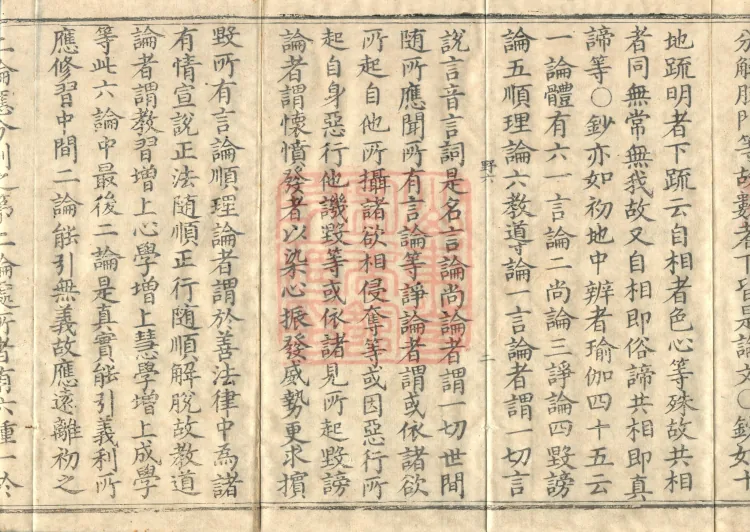 分解脱門等故數者下皆是論文〇鈔如十
地疏明者下疏云自相者色心等殊故共相
者同無常無我故又自相即俗諦共相即真
諦等〇鈔亦如初地中辨者瑜伽四十五云
一論體有六一言論二尚論三諍論四毀謗
論五順理論六教導論一言論者謂一切言
野六
二
說言音言詞是名言論尚論者謂一切世間
随所應聞所有言論等諍論者謂或依諸欲
所起自他所攝諸欲相侵奪等或因惡行所
起自身惡行他譏毀等或依諸見所起毀謗
論者謂懷憤發者以染心振發威勢更求擯
毀所有言論順理論者謂於善法律中為諸
有情宣說正法随順正行随順解脱故教道
論者謂教習增上心學增上慧學增上成學
等此六論中最後二論是真實能引義利所
應修習中間二論能引無義故應遠離初之
二論應分別之第二論處所者有六種一於